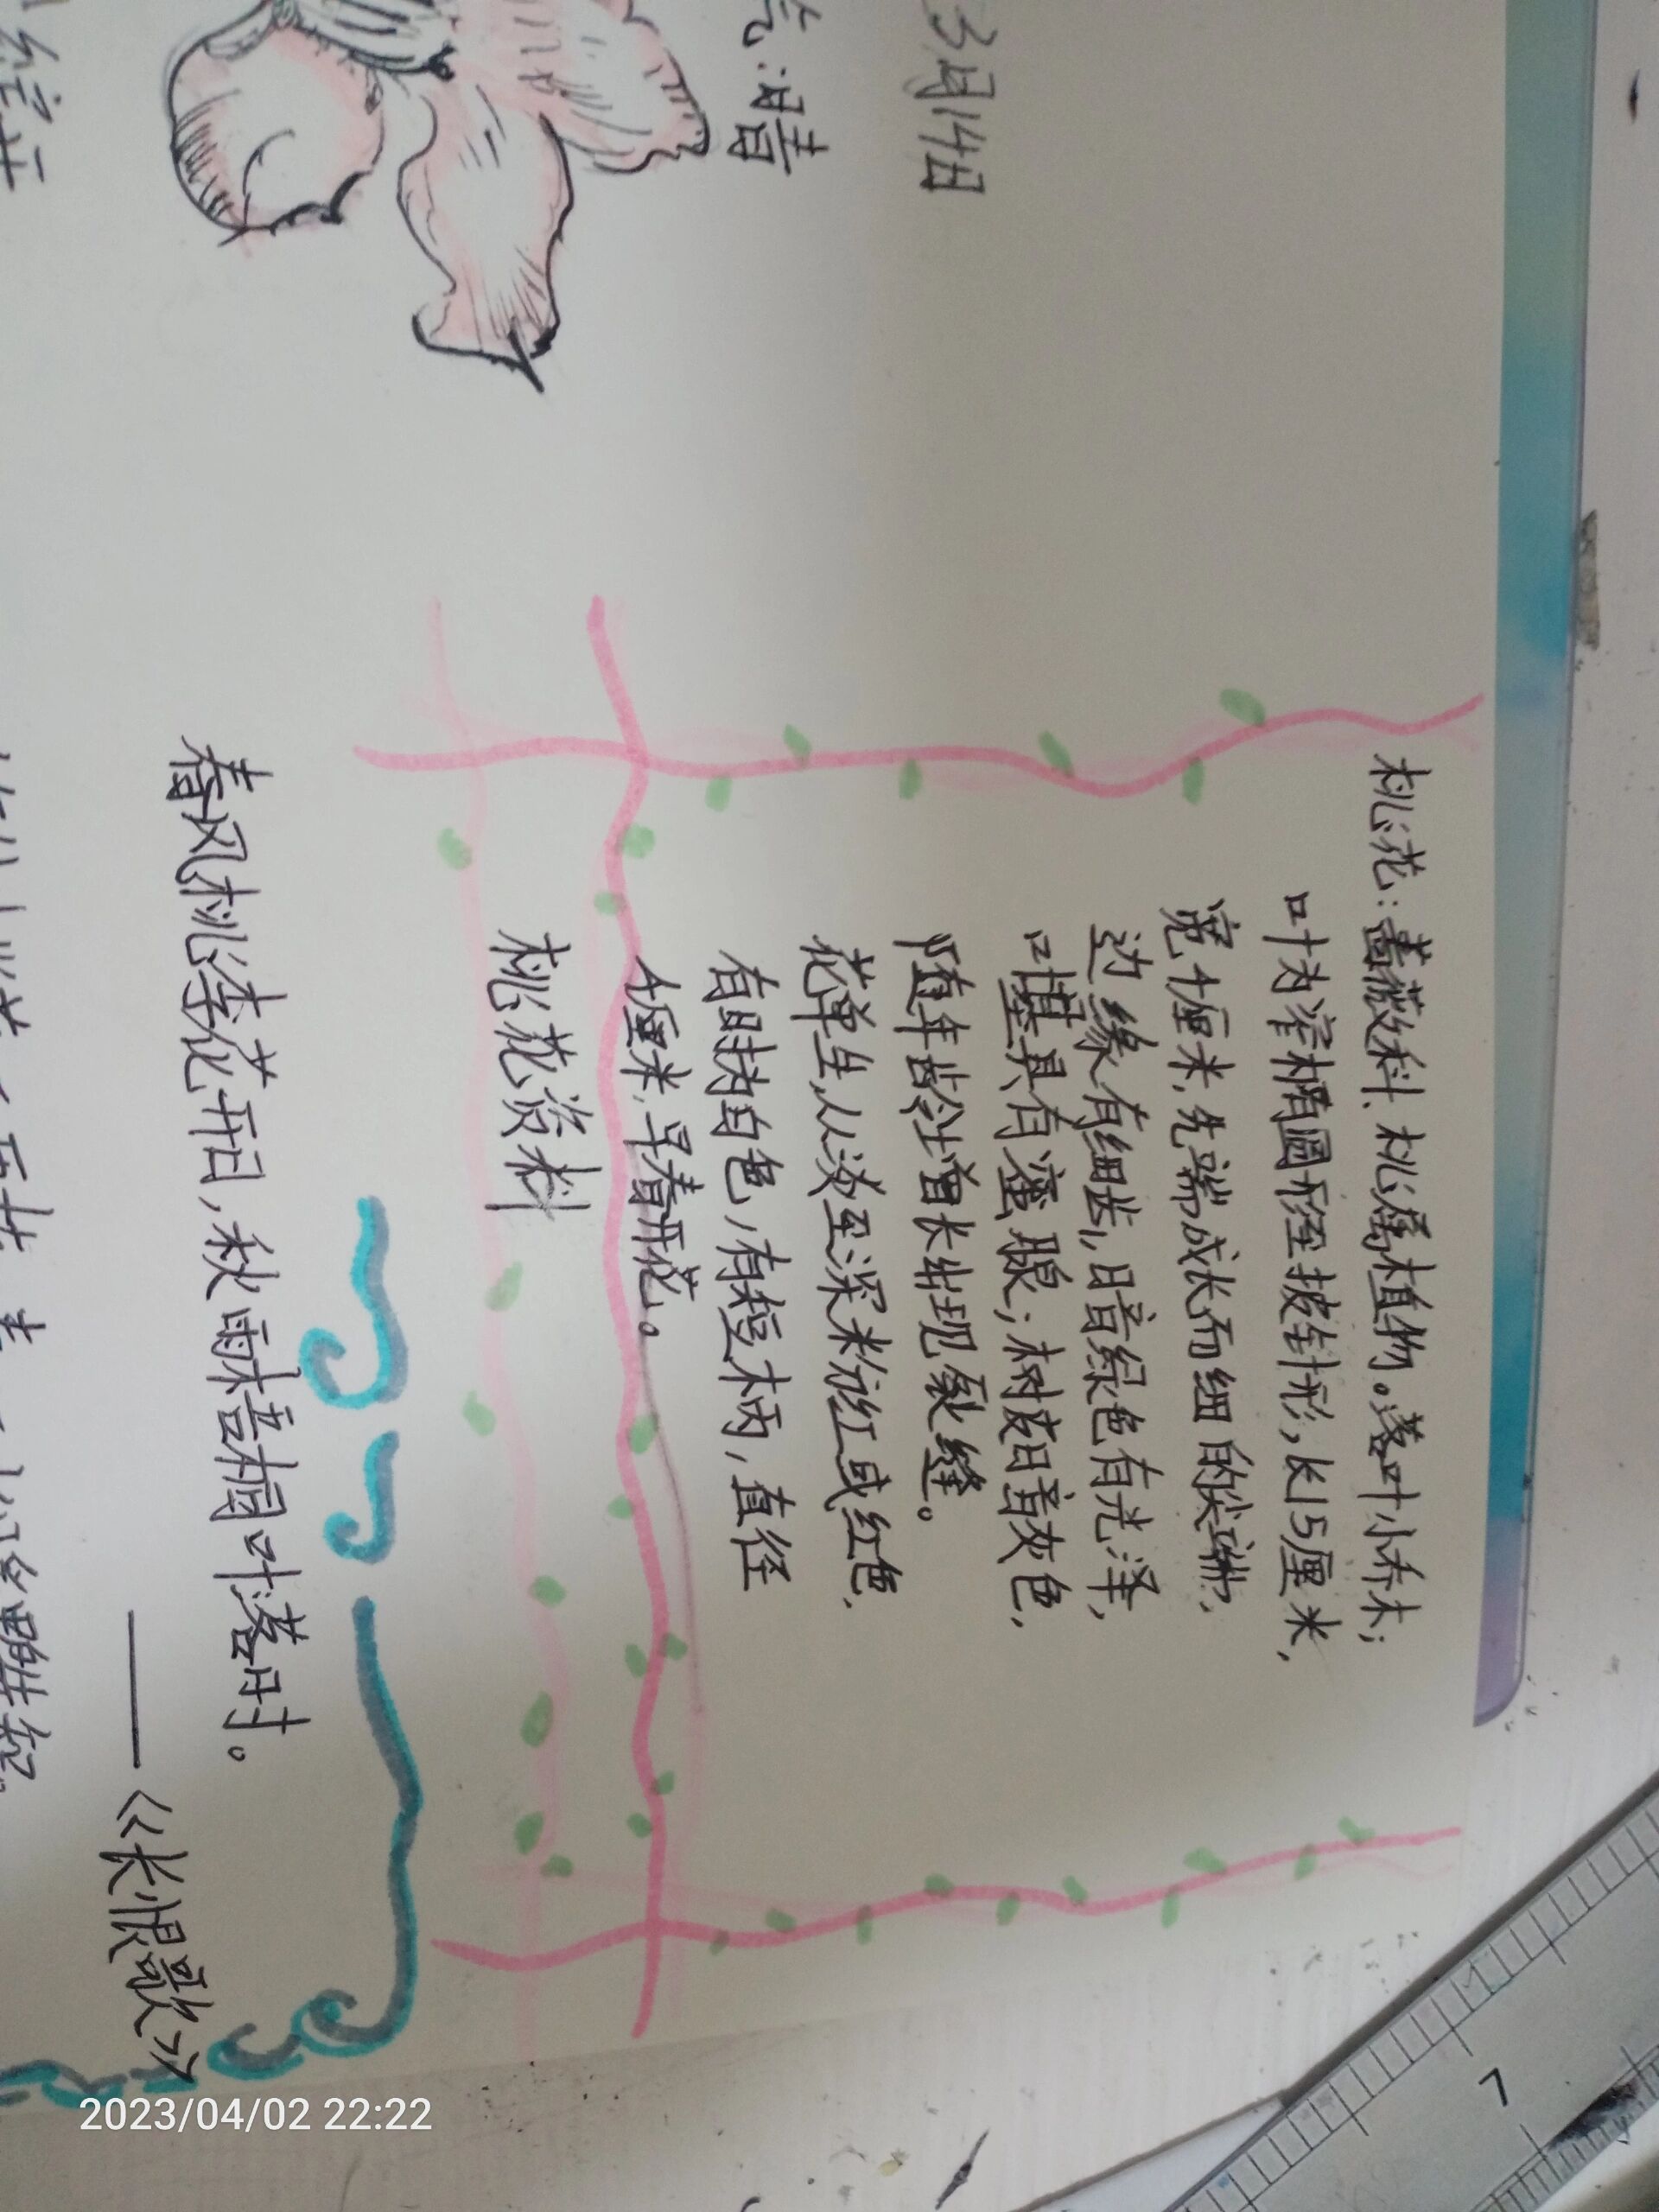 3月14日
气:晴
桃花:蔷薇科、桃属植物。落叶小乔木;
叶为窄椭圆形至披针形,长15厘米,
宽4厘米,先端成长而细的尖端,
边缘有细齿,暗绿色有光泽,
叶基具有蜜腺;树皮暗灰色,
随年龄增长出现裂缝。
花单生,从淡至深粉红或红色,
有时为白色,有短柄,直径
4厘米,早春开花。
桃花资料
春风桃李花开日,秋雨梧桐叶落时。
——《长恨歌》
2023/04/02 22:22
7